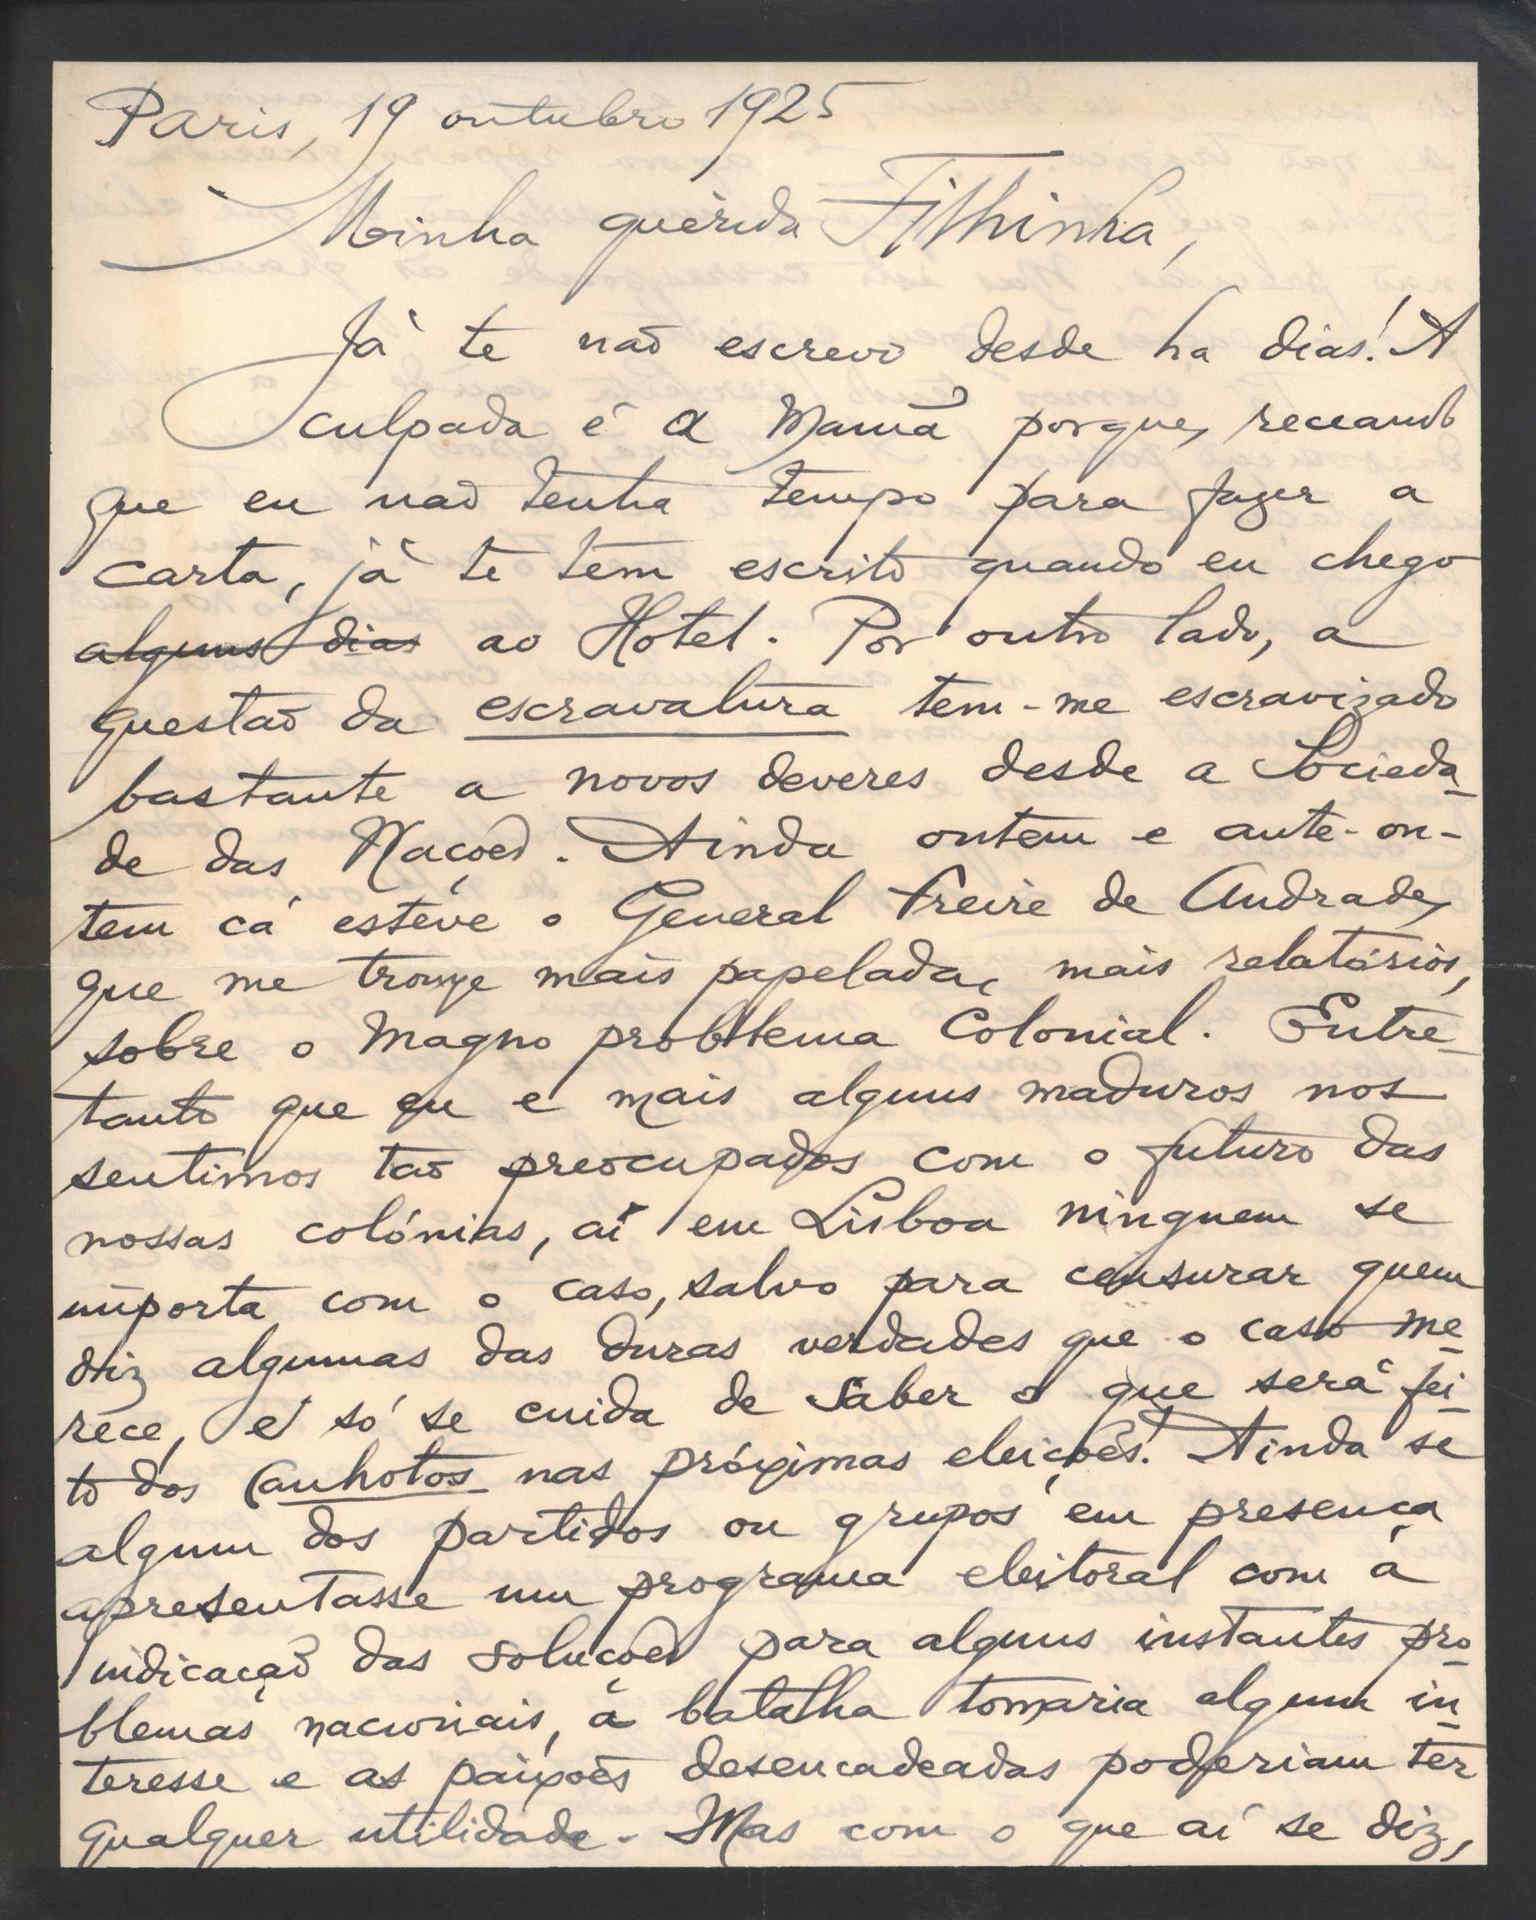 Paris, 19 outubro 1925
Minha querida Filhinha,
Já te não escrevo desde ha dias! A
culpada é a Mamã porque, receando
que eu não tenha tempo para fazer a
carta, já te tem escrito quando eu chego
alguns dias ao Hotel. Por outro lado, a
questão da escravatura tem-me escravizado
bastante a novos deveres desde a Socieda-
de das Nações. Ainda ontem e ante-on-
tem cá estêve o General Freire de Andrade,
que me trouxe mais papelada, mais relatórios,
sobre o magno problema Colonial. Entre-
tanto que eu e mais alguns maduros nos
sentimos tão preocupados com o futuro das
nossas colónias, aí em Lisboa ninguem se
importa com o caso, salvo para censurar quem
diz algumas das duras verdades que o caso me-
rece, e só se cuida de saber o que será fei-
to dos Canhotos nas próximas eleições! Ainda se
algum dos partidos ou grupos em presença
apresentasse um programa eleitoral com a
indicação das soluções para alguns instantes pro-
blemas nacionais, a batalha tomaria algum in-
teresse e as paixões desencadeadas poderiam ter
qualquer utilidade. Mas com o que aí se diz,